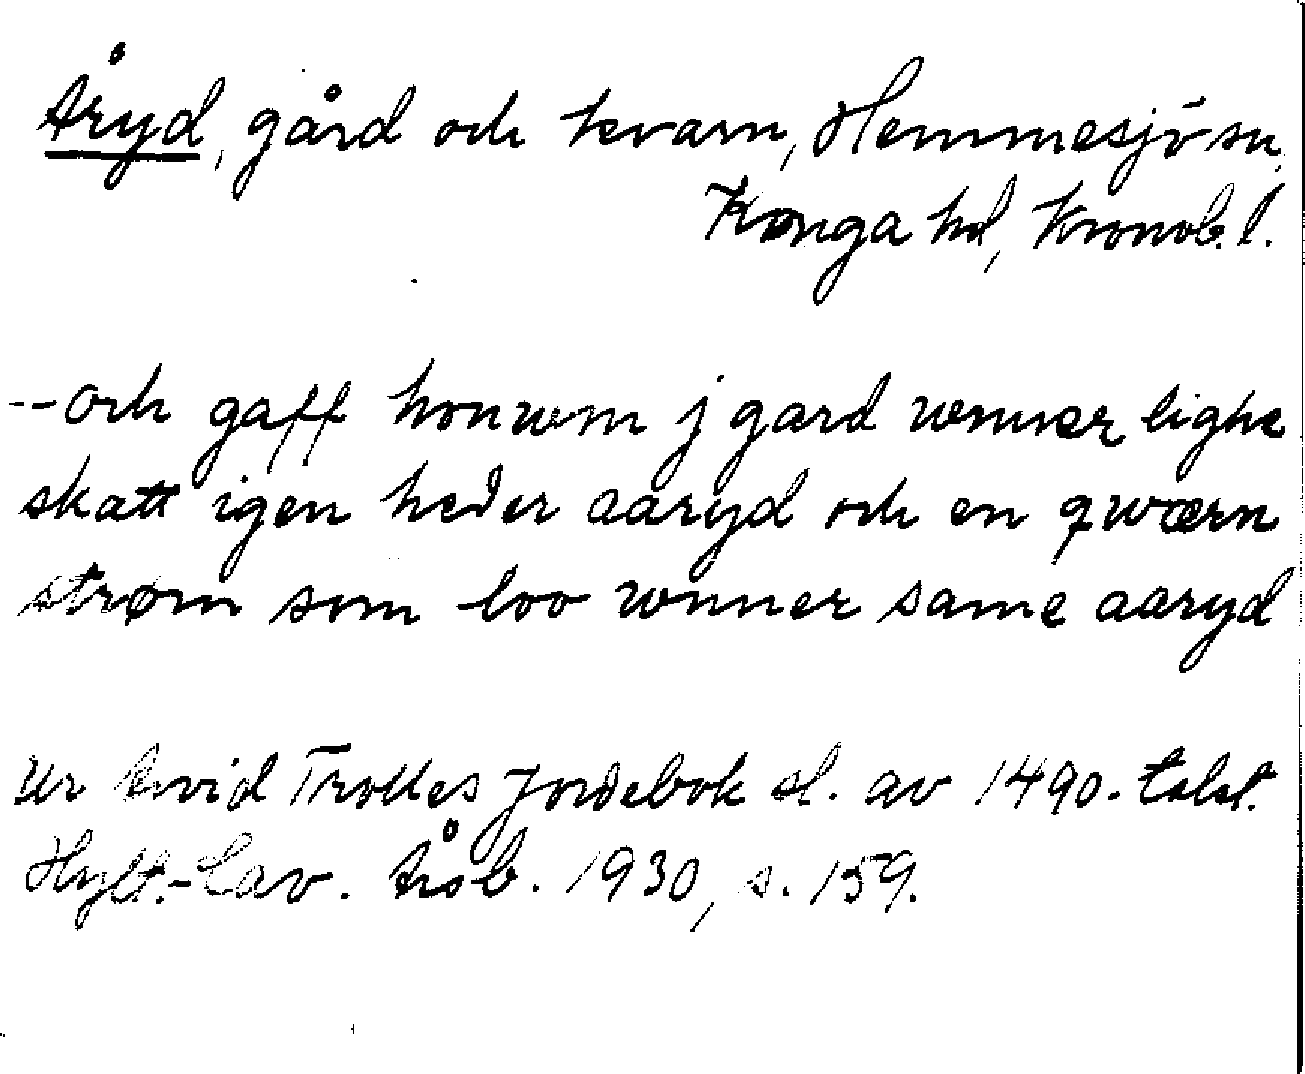 Åryd, gård och kvarn, Hemmesjö sn,
Konga hd, Kronob. l.
-- och gaff honwm j gard wnner lighe
skatt igen heder aaryd och en qwærn
strøm som loo wnner same aaryd
Ur Arvid Trolles Jordebok sl. av 1490-talet.
Hylt.-Cav. Årsb. 1930, s. 159.